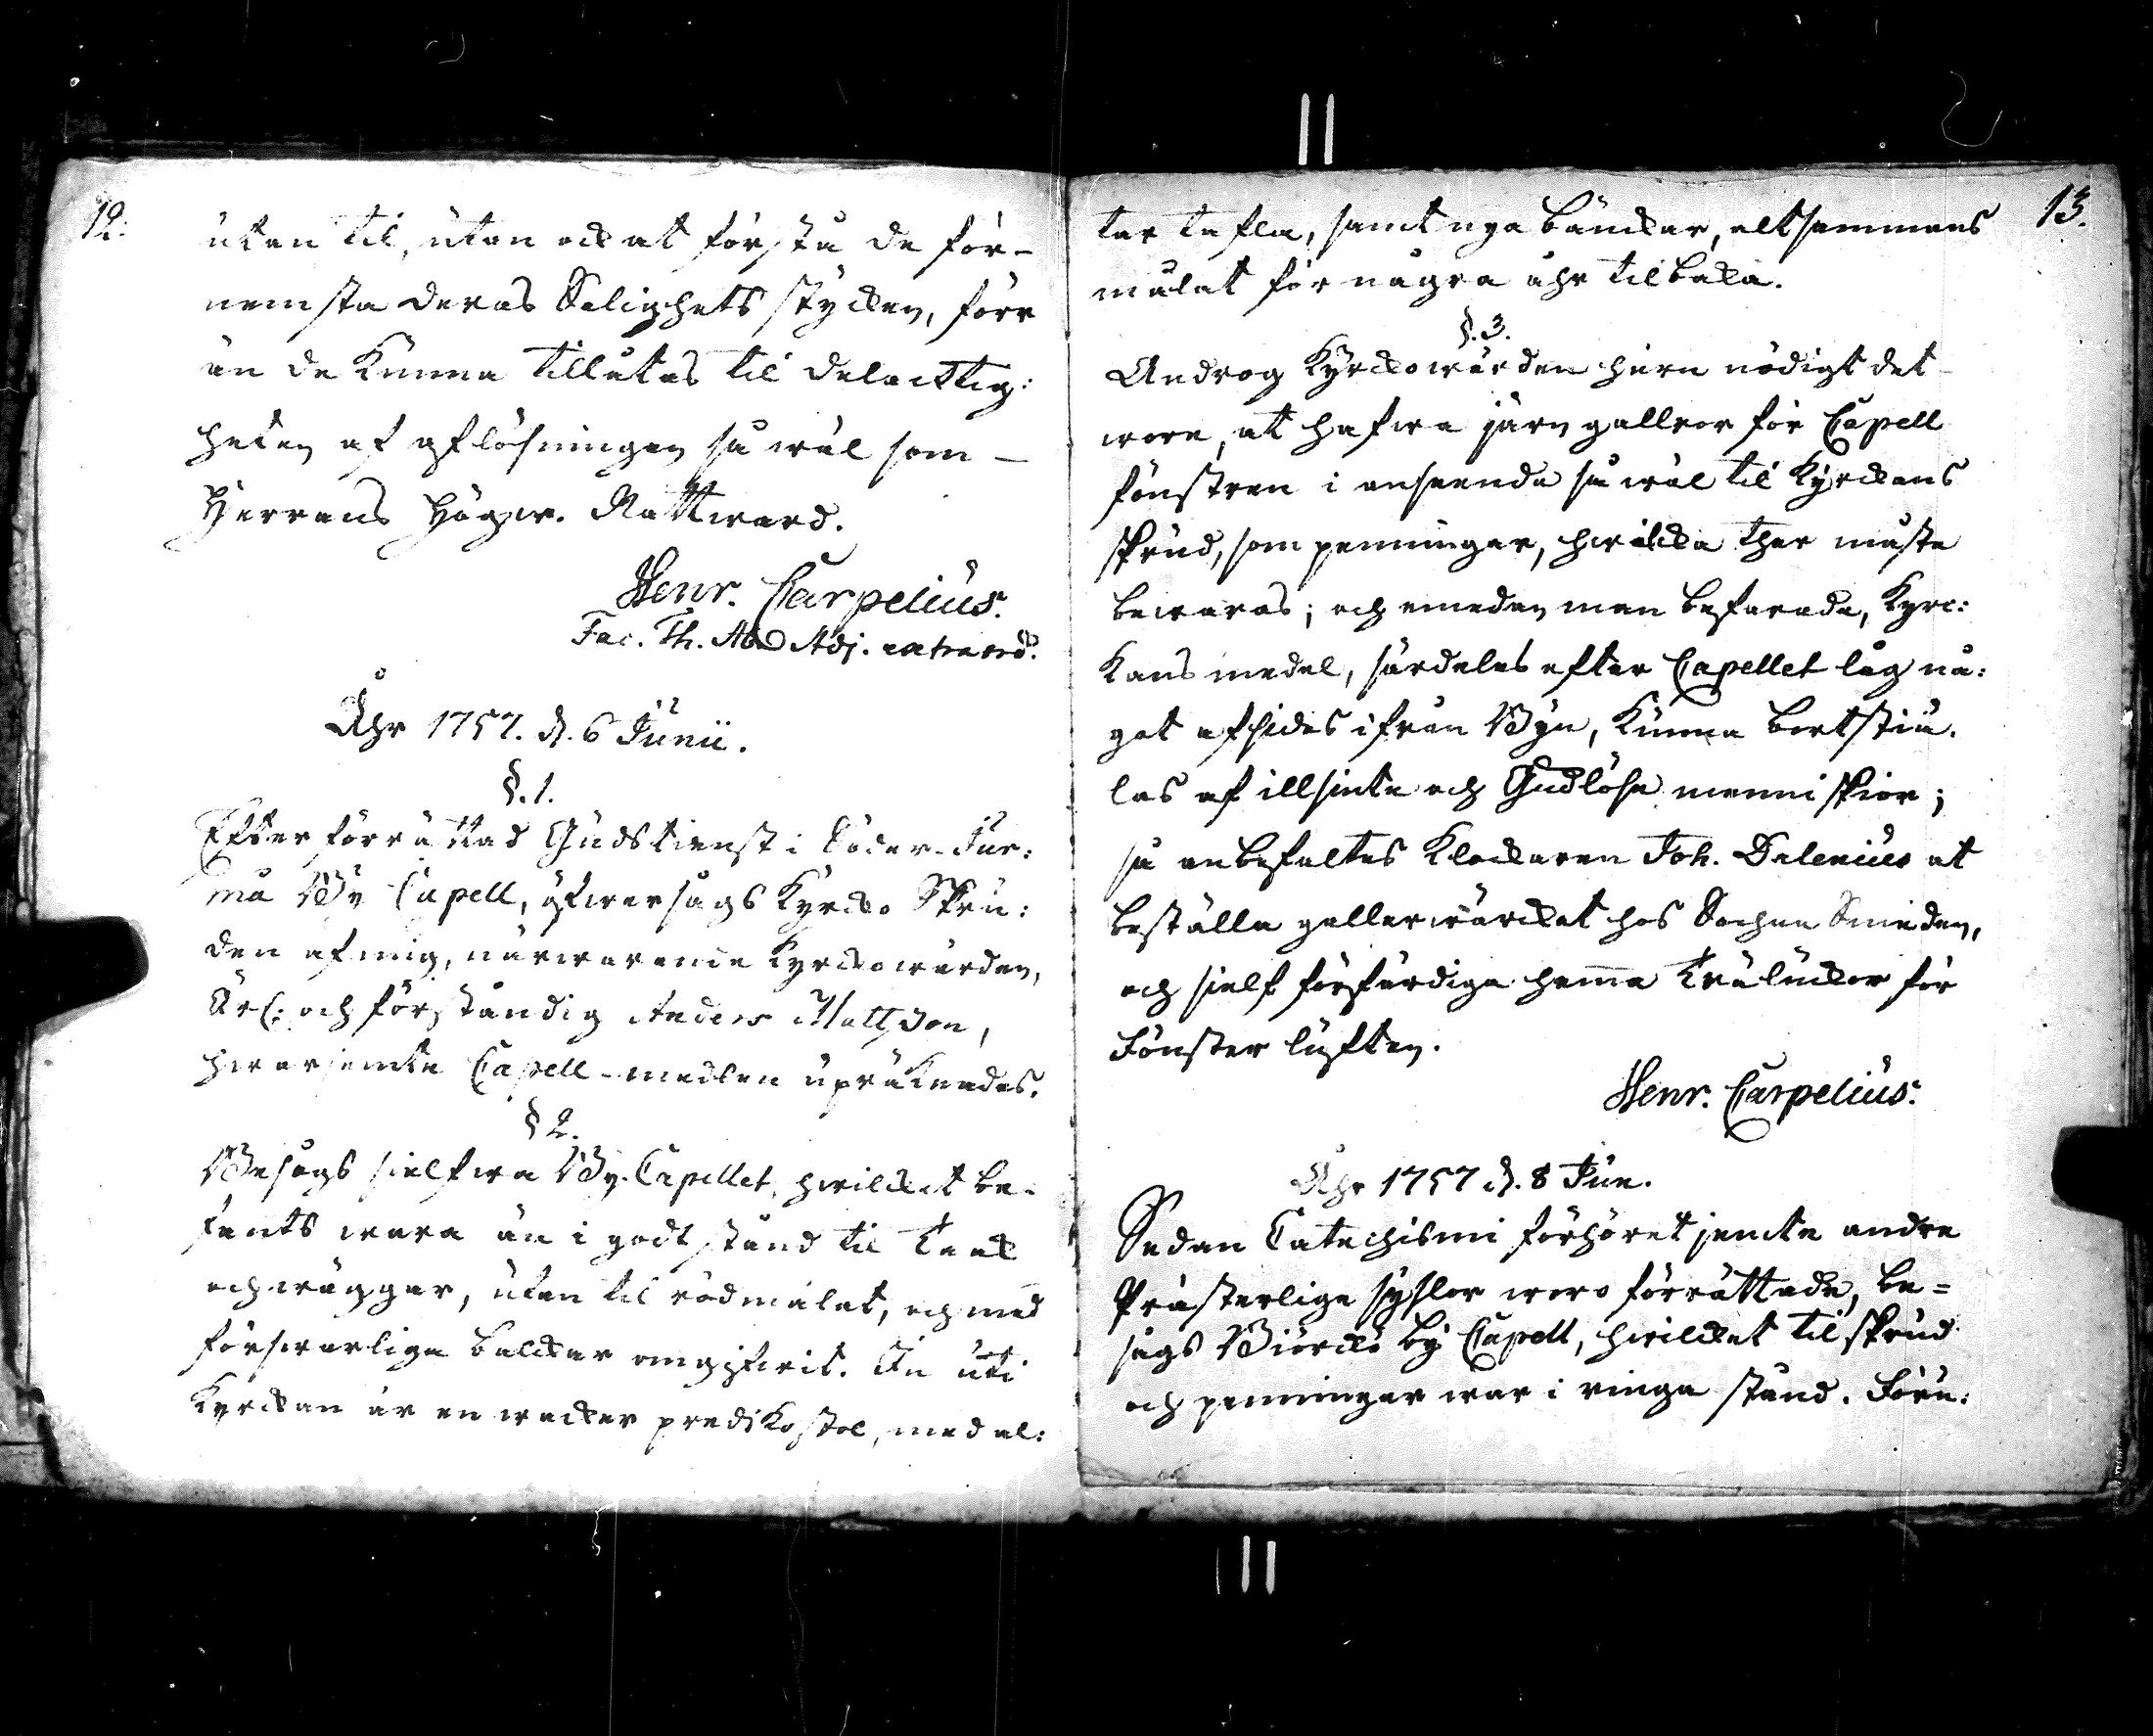 12.
utan til, utan ock at förstå de för-
nemsta deras Salighets stycken, förr
än de kunna tillåtas til delacktig:
heten af aflösningen så wäl som –
Herrens Högw. Nattward.
Henr. Carpelius.
Fac. Th. Ab. Adj. extraord.
Åhr 1757. d. 6 Junii.
§. 1.
Efter förrättad Gudstienst i Söder-Fur:
må By Capell, öfwersågs Kyrcko Skru:
den af mig, närwarande Kyrckowärden,
Ärl: och förståndig Anders Mattson,
hwarjemte Capell-medlen upräknades.
§ 2.
Besågs sielfwa By-Capellet, hwilcket be-
fants wara än i godt stånd til taak
och wäggar, utan til rödmålat, och med
förswarlige balckar omgifwit. In uti
Kyrckan är en wacker predikostol, med al:
13.
tar tafla, samt nya bänckar, altsammans
målat för några åhr tilbaka.
§. 3.
Androg Kyrckowärden huru nödigt det
wore, at hafwa järn gallror för Capell
fönstren i anseende så wäl til Kyrckans
skrud, som penningar, hwilcka ther måste
bewaras; och emedan man befarade, Kyrc:
kans medel, särdeles efter Capellet låg nå:
got afsides ifrån Byn, kunna bortstiä-
las af illsinte och Gudlöse menniskior;
så anbefaltes Klockaren Joh. Dalenius at
beställa gallerwärcket hos Sochne Smeden,
och sielf förfärdiga hema träluckor för
Fönster lufften.
Henr. Carpelius.
Åhr 1757 d. 8 Jun.
Sedan Catechismi förhöret jemte andre
Prästerlige sysslor woro förrättade, be=
sågs Biörckö by Capell, hwilcket til skrud
och penningar war i ringa stånd. Föru: